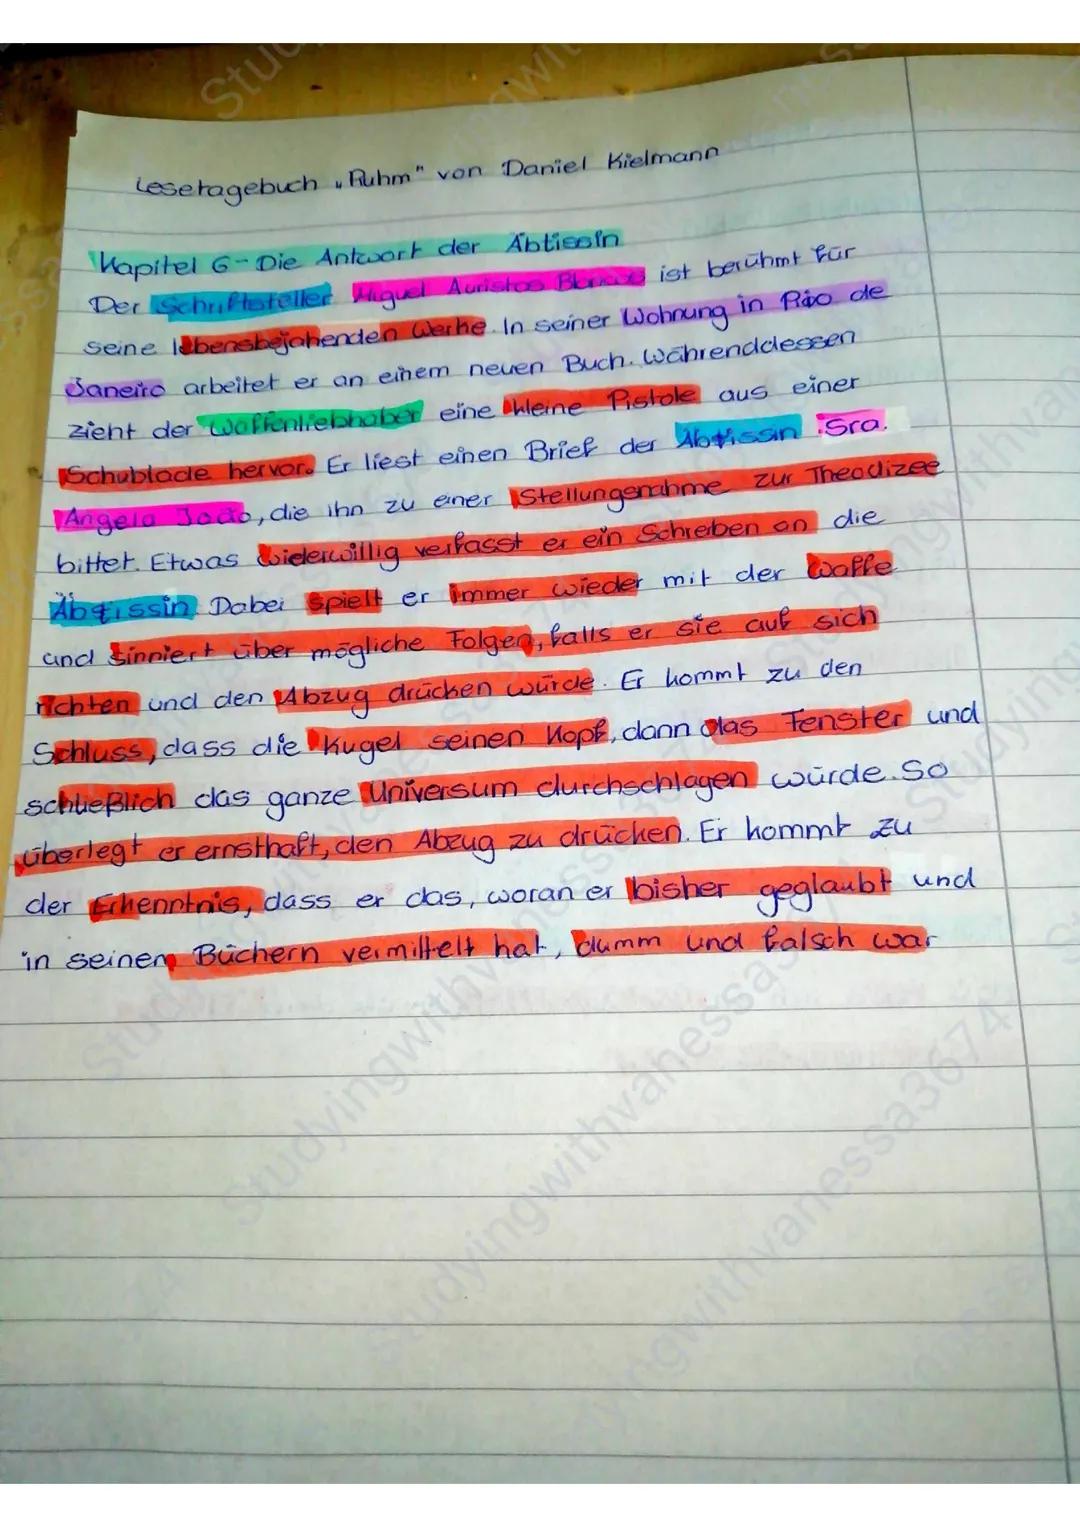 Lesetagebuch „Ruhm" von Daniel Kielmann
Kapitel 6 - Die Antwort der Äbtissin
Der Schriftsteller Miguel Auristos Blancos ist berühmt für
seine lebensbejahenden Werke. In seiner Wohnung in Rio de
Janeiro arbeitet er an einem neuen Buch. Währenddessen
zieht der Waffenliebhaber eine kleine Pistole aus einer
Schublade hervor. Er liest einen Brief der Äbtissin Sra.
Angela João, die ihn zu einer Stellungenahme zur Theodizee
bittet. Etwas widerwillig verfasst er ein Schreiben an die
Äbtissin. Dabei spielt er immer wieder mit der Waffe
und sinniert über mögliche Folgen, falls er sie auf sich
richten und den Abzug drücken würde. Er kommt zu den
Schluss, dass die Kugel seinen Kopf, dann das Fenster und
schließlich das ganze Universum durchschlagen würde. So
überlegt er ernsthaft, den Abzug zu drücken. Er kommt zu
der Erkenntnis, dass er das, woran er bisher geglaubt und
in seinen Büchern vermittelt hat, dumm und falsch war
Studyingwithvanessa3674